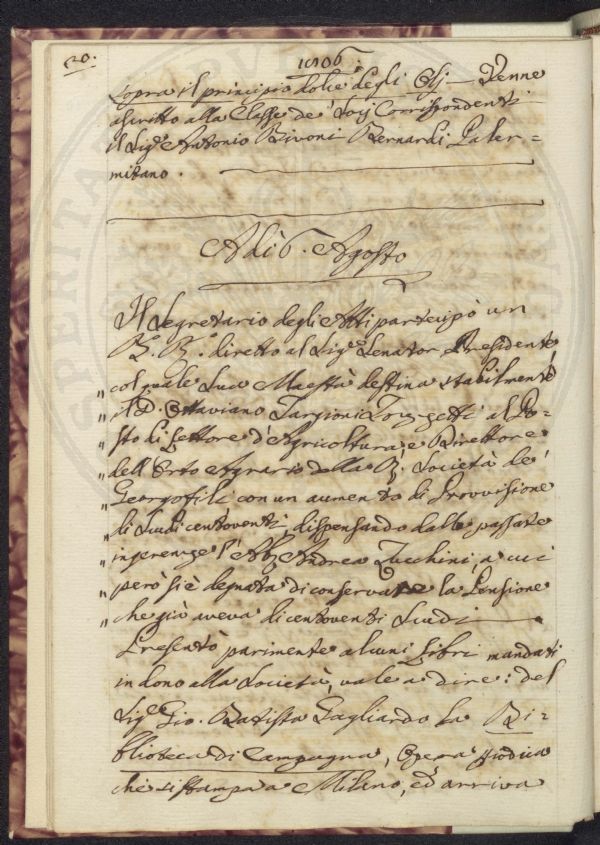 20.
1806
sopra il principio dolce degli Olj. Venne
ascritto alla Classe de' Socj Corrispondenti
il Sigr. Antonio Bivoni Bernardi Paler=
mitano.
Adì 6. Agosto
Il Segretario degli Atti partecipò un
B. R. diretto al Sigre. Senator Presidente
„ col quale Sua Maestà destina stabilmente
„ il D. Ottaviano Targioni Tozzetti al Po=
„ sto di Lettore d'Agricoltura e Direttore
„ dell'Orto Agrario della R. Società de'
„ Georgofili con un aumento di Provvisione
„ di Scudi centoventi, dispensando dalle passate
„ ingerenze l'Ab. Andrea Zucchini, a cui
„ però si è degnata di conservare la Pensione
„ che già aveva di centoventi Scudi
Presentò parimente alcuni Libri mandati
in dono alla Società, vale a dire: del
Sigr. Gio. Batista Gagliardo la Bi=
blioteca di Campagna, Opera
che si stampa a Milano, ed arriva
SPERITA